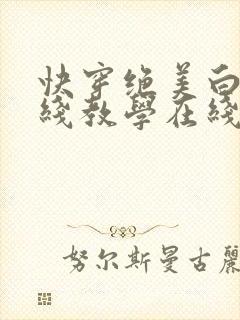 快穿绝美白
线教學在线
努尔斯曼古麗